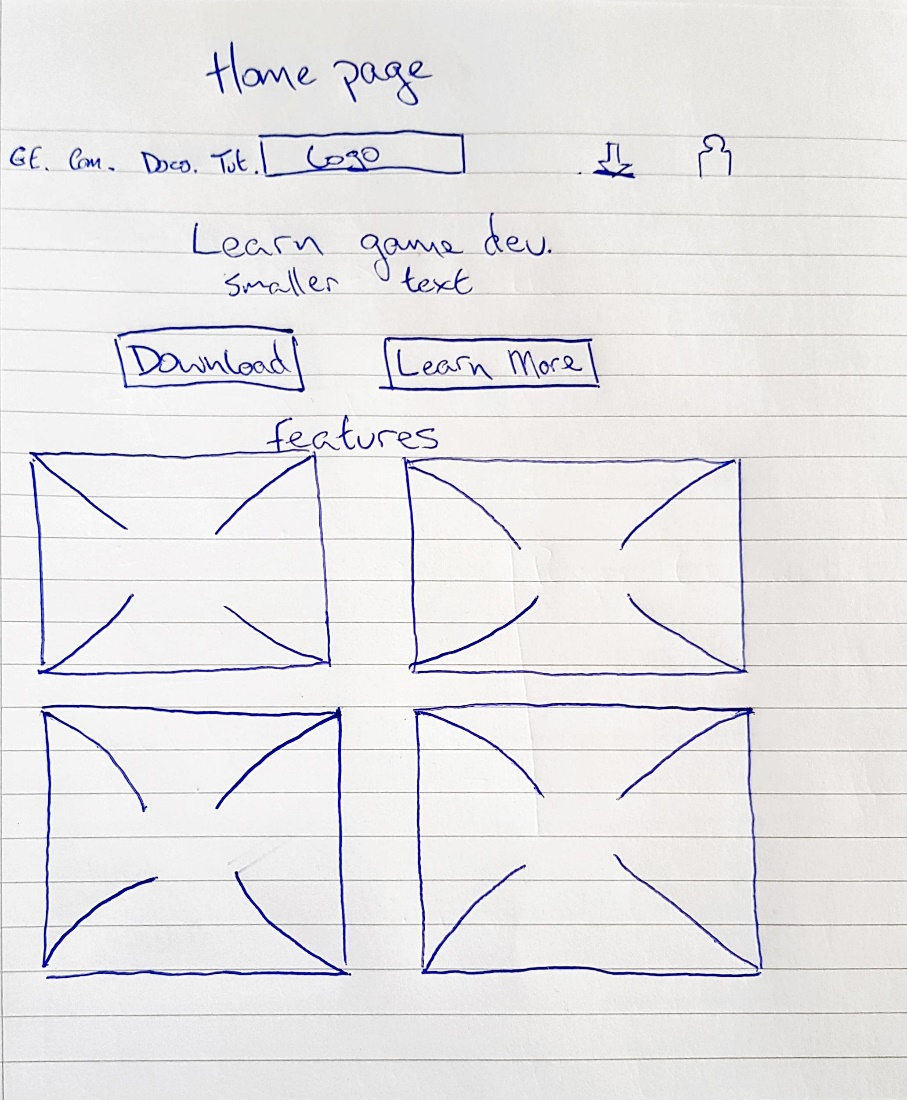 Home page
GE. Com. Doco. Tut. Logo
Learn game dev.
smaller text
Download Learn More
features